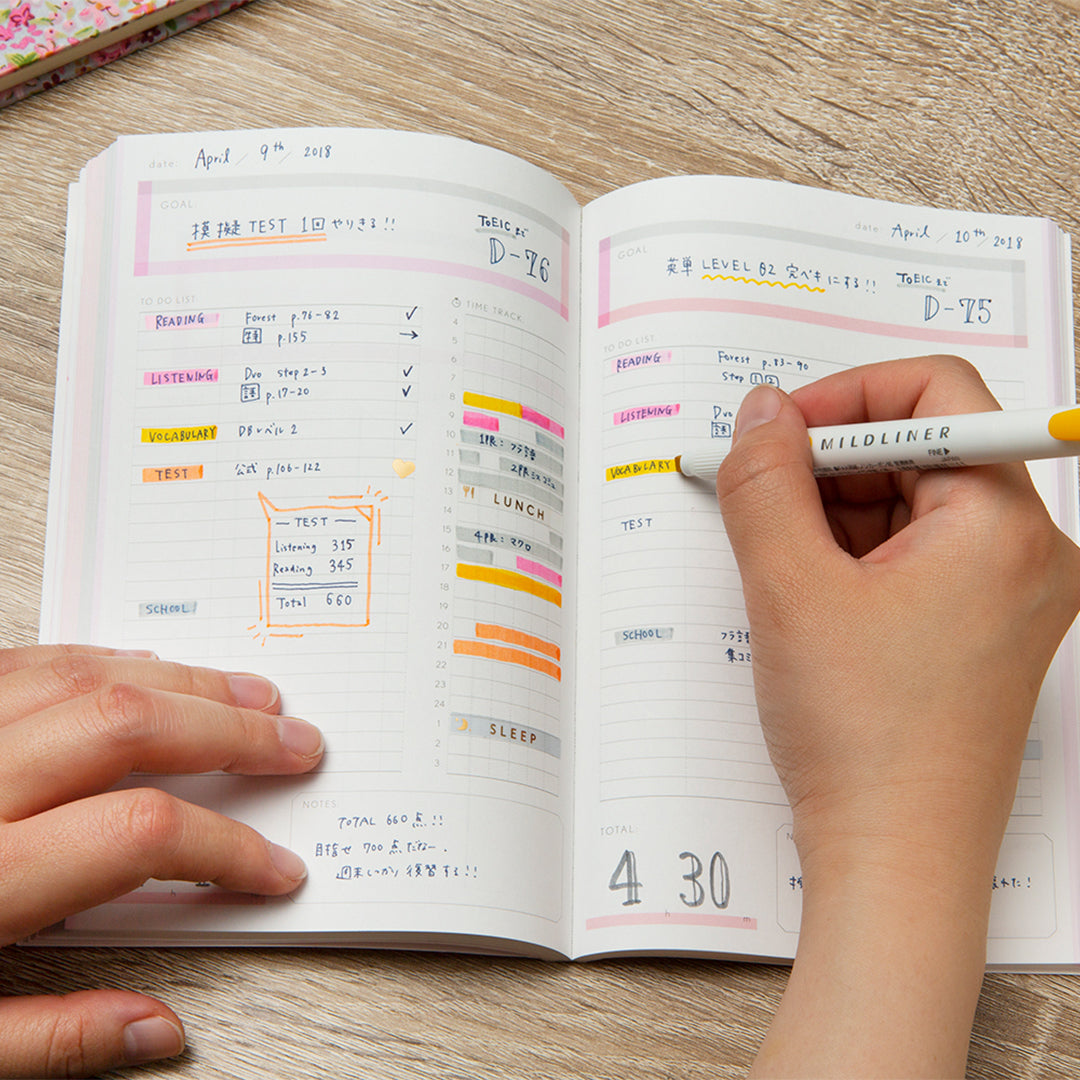 date: April / 9th / 2018
GOAL:
模擬 TEST 1回 やりきる!!
TOEICまで
D-76
TO DO LIST:
READING Forest p.76-82 ✓
p.155 →
LISTENING Duo step 2-3 ✓
p.17-20 ✓
VOCABULARY DBレベル 2 ✓
TEST 公式 p.106-122
— TEST —
Listening 315
Reading 345
Total 660
SCHOOL
TIME TRACK:
4
5
6
7
8
9
10 1限: フラ語
11
12 2限 ミスコミュ
13 LUNCH
14
15
16 4限: マクロ
17
18
19
20
21
22
23
24
1 SLEEP
2
3
NOTES:
TOTAL 660 点!!
目指せ 700 点だなー.
週末しっかり復習する!!
date: April / 10th / 2018
GOAL:
英単 LEVEL 02 完ペキにする!!
TOEICまで
D-75
TO DO LIST:
READING Forest p.83-90
Step 1 2
LISTENING Duo
VOCABULARY
TEST
SCHOOL フラ語
集コミ
TOTAL:
4 h 30 m
まれた!
MILDLINER
FINE▶